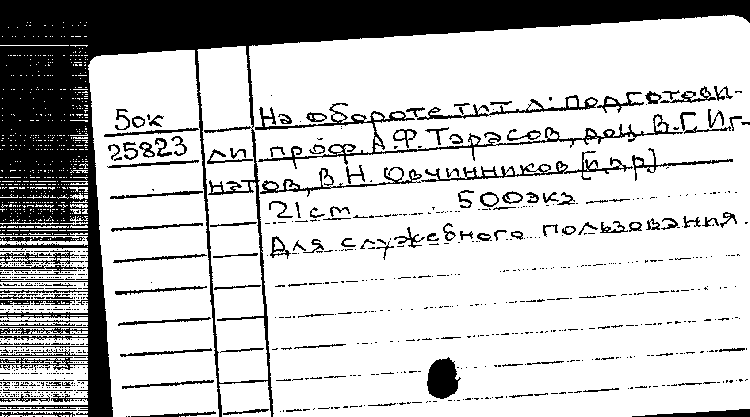 5ок На обороте тит. л: Подготови-
25823 ли проф. А.Ф. Тарасов, доц. В.Г. Иг-
натов, В.Н. Овчинников [и др]
21 cm 500экз
Для служебного пользования.